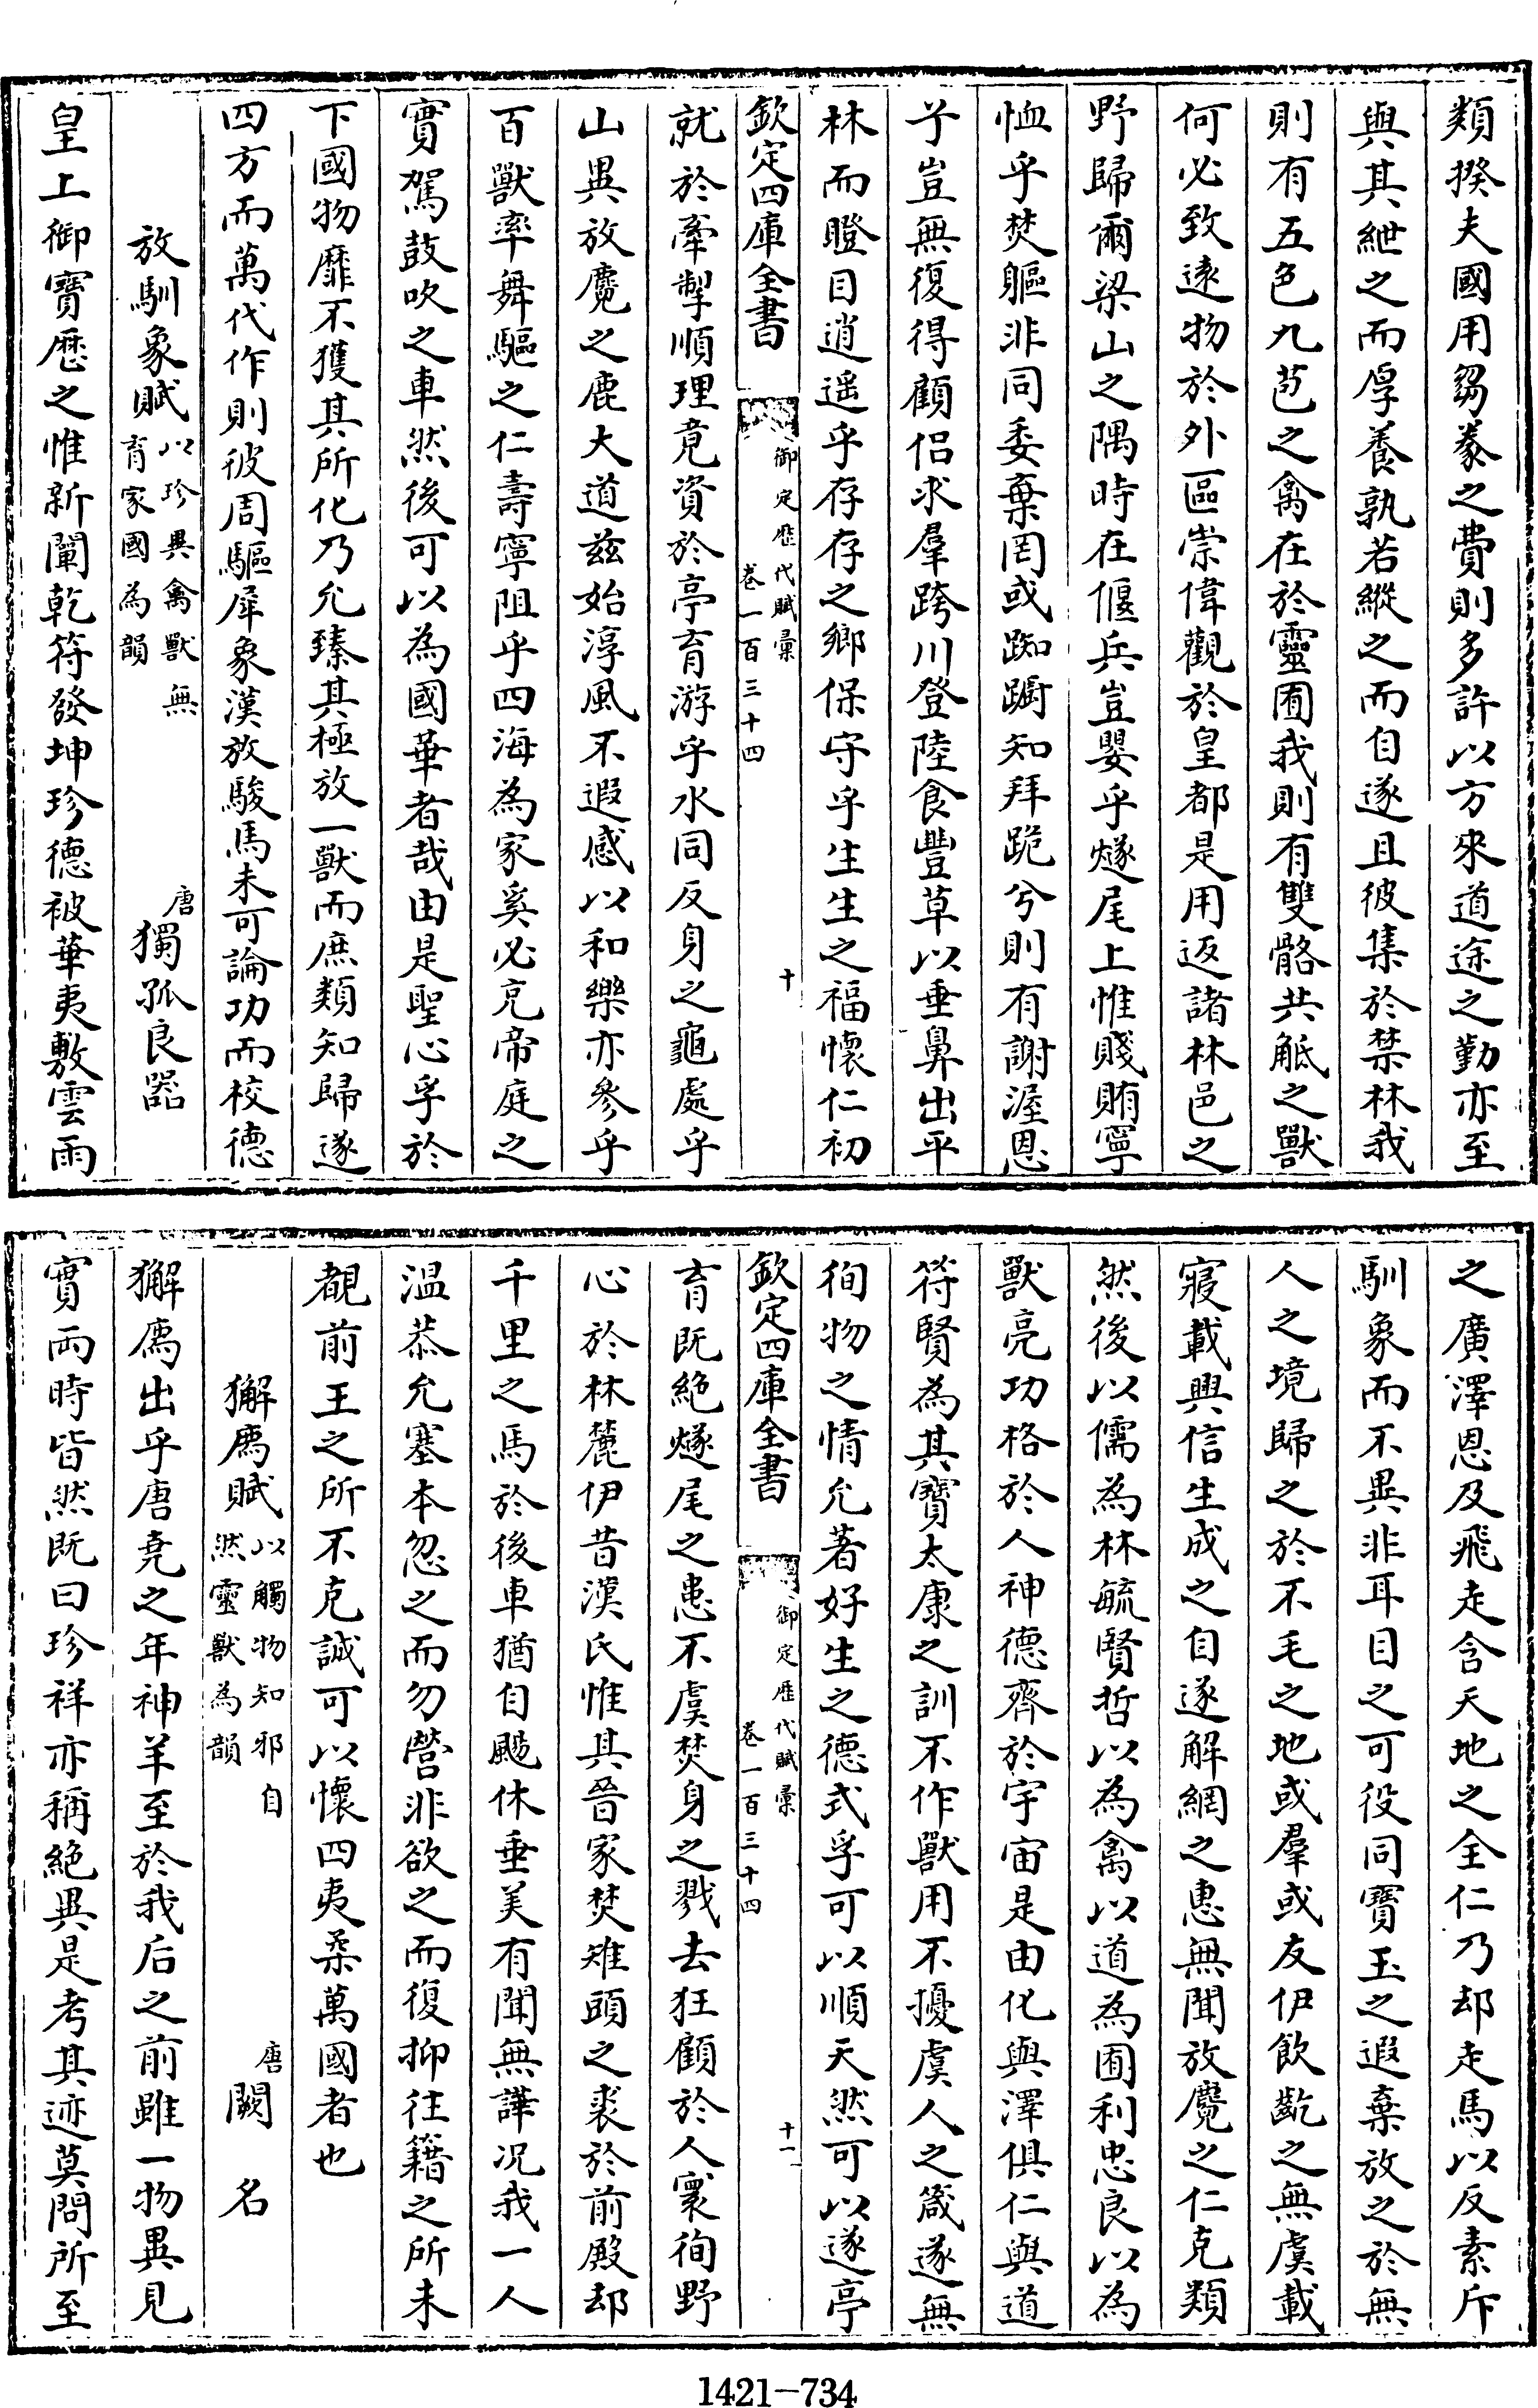 類揆夫國用芻豢之費則多許以方來道途之勤亦至
與其紲之而厚養孰若縱之而自遂且彼集於禁林我
則有五色九苞之禽在於靈囿我則有雙骼共觝之獸
何必致遠物於外區崇偉觀於皇都是用返諸林邑之
野歸爾梁山之隅時在偃兵豈嬰乎燧尾上惟賤賄寧
恤乎焚軀非同委棄罔或踟躕知拜跪兮則有謝渥恩
兮豈無復得顧侣求羣跨川登陸食豐草以垂鼻出平
林而瞪目逍遥乎存存之鄉保守乎生生之福懷仁初
欽定四庫全書
御定歷代賦彙
卷一百三十四
十
就於牽掣順理竟資於亭育游乎水同反身之龜處乎
山異放麑之鹿大道兹始淳風不遐感以和樂亦參乎
百獸率舞驅之仁壽寧阻乎四海為家奚必充帝庭之
實駕鼓吹之車然後可以為國華者哉由是聖心孚於
下國物靡不獲其所化乃允臻其極放一獸而庶類知歸遂
四方而萬代作則彼周驅犀象漢放駿馬未可論功而校德
放馴象賦
以珍異禽獸無
育家國為韻
唐
獨孤良器
皇上御寶厯之惟新闡乾符發坤珍德被華夷敷雲雨
之廣澤恩及飛走含天地之全仁乃却走馬以反素斥
馴象而不異非耳目之可役同寶玉之遐棄放之於無
人之境歸之於不毛之地或羣或友伊飲齕之無虞載
寢載興信生成之自遂解網之惠無聞放麑之仁克類
然後以儒為林毓賢哲以為禽以道為囿利忠良以為
獸亮功格於人神德齊於宇宙是由化與澤俱仁與道
符賢為其寶太康之訓不作獸用不擾虞人之箴遂無
徇物之情允著好生之德式孚可以順天然可以遂亭
欽定四庫全書
御定歷代賦彙
卷一百三十四
十一
育既絶燧尾之患不虞焚身之戮去狂顧於人寰徇野
心於林麓伊昔漢氏惟其晉家焚雉頭之裘於前殿却
千里之馬於後車猶自颺休垂美有聞無譁况我一人
温恭允塞本忽之而勿營非欲之而復抑往籍之所未
覩前王之所不克誠可以懷四夷柔萬國者也
獬廌賦
以觸物知邪自
然靈獸為韻
唐
闕名
獬廌出乎唐堯之年神羊至於我后之前雖一物異見
實兩時皆然既曰珍祥亦稱絶異是考其迹莫問所至
1421—734